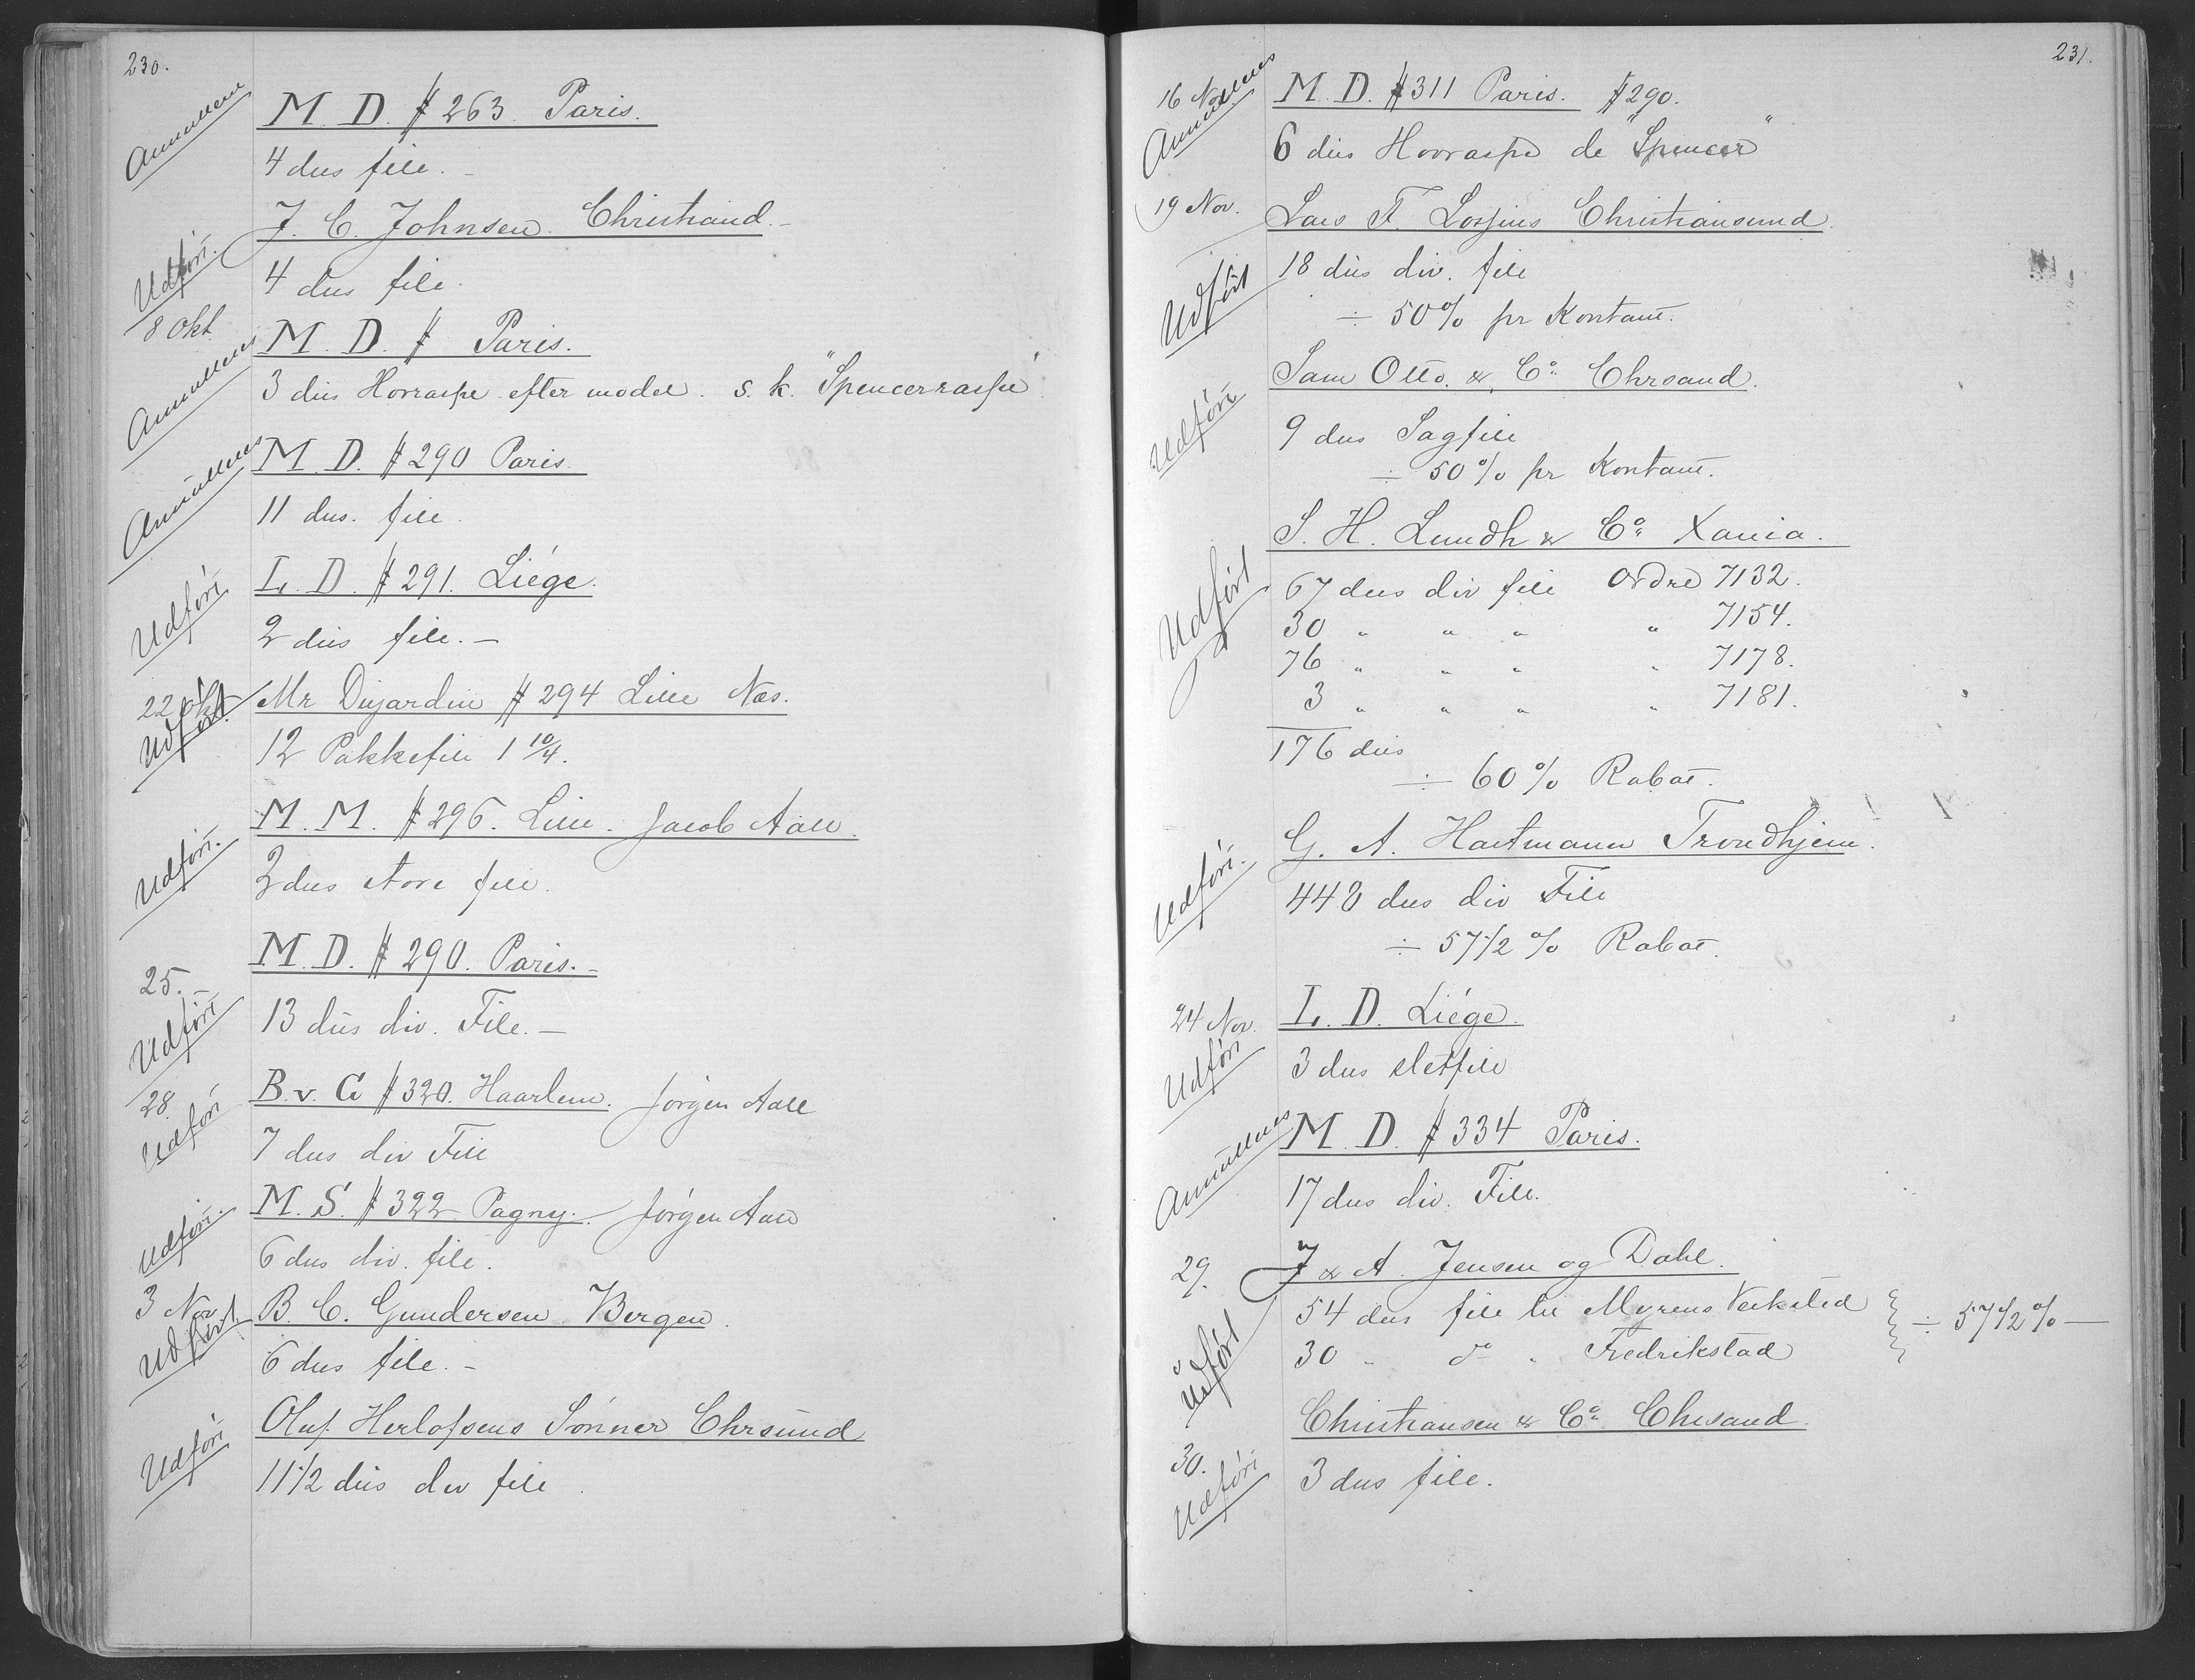 230.
Annulleres
M. D. # 263. Paris.
4 dus file. -
J. C. Johnsen. Christiand. -
Udført.
4 dus file.
8 Okt.
M. D. # Paris.
Annulleres
3 dus Hovraspe efter model. s. k. "Spencerraspe"
Annulleres
M. D. # 290 Paris.
11 dus. file.
Udført
L. D. # 291. Liége.
2 dus file. -
22 Okt.
Udført
Mr Dujardin # 294 Lille Næs.
12 Pakkefile 1 10/4.
Udført.
M. M. # 296. Lille. Jacob Aall.
2 dus store file.
25.
Udført
M. D. # 290. Paris. -
13 dus div. File. -
28.
Udført
B. v. G # 320. Haarlem. Jørgen Aall
7 dus div File
Udført.
M. S. # 322 Pagny. Jørgen Aall
6 dus div. file.
3 Nov
Udført.
B. C. Gundersen Bergen.
6 dus file. -
Udført
Oluf Herlofsens Sønner Chrsund
11 1/2 dus div file.
231.
16 Nov.
Annulleres
M. D. # 311 Paris. # 290.
6 dus Hovraspe de "Spencer"
19 Nov.
Lars F. Lossius Christiansund.
Udført
18 dus div. file
÷ 50% pr Kontant.
Sam Otto. & Co. Chrsand.
Udført
9 dus Sagfile
÷ 50% pr Kontant.
S. H. Lundh & Co. Xania.
Udført
67 dus div file Ordre 7132.
30 " " " " 7154.
76 " " " " 7178.
3 " " " " 7181.
176 dus
÷ 60% Rabat.
G. A. Hartmann Trondhjem.
Udført.
448 dus div File
÷ 57 1/2 % Rabat.
24 Nov.
Udført
L. D. Liége.
3 dus sletfile
Annulleres
M. D. # 334 Paris.
17 dus div. File.
29.
J & A. Jensen og Dahl.
Udført
54 dus file til Myrens Verksted
÷ 57 1/2 % —
30 " do " Fredrikstad
Christiansen & Co. Chrsand.
30.
Udført
3 dus file.